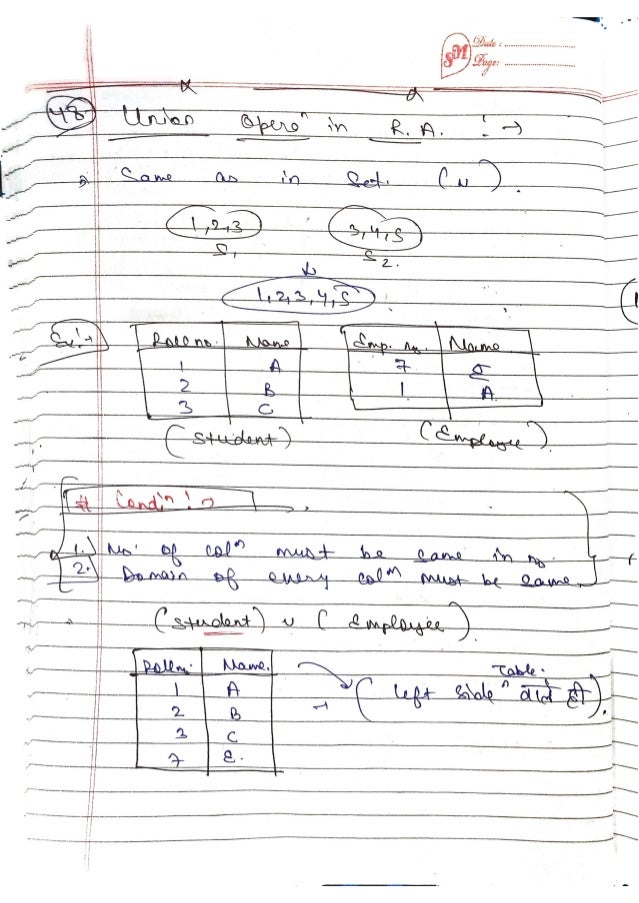 SM Date :
Page:
48 Union Operoⁿ in R. A. : →
Same as in Set. (∪).
1,2,3 3,4,5
S1 S2.
1,2,3,4,5
Ex:→ Roll no. Name Emp. No. Name
1 A 7 E
2 B 1 A
3 C
(Student) (Employee)
# Condiⁿ :→
1.) No. of colⁿ must be same in no.
2.) Domain of every colᵐ must be same.
(Student) ∪ (Employee).
Rollno. Name.
1 A → (left side Table वाले ही).
2 B
3 C
7 E.